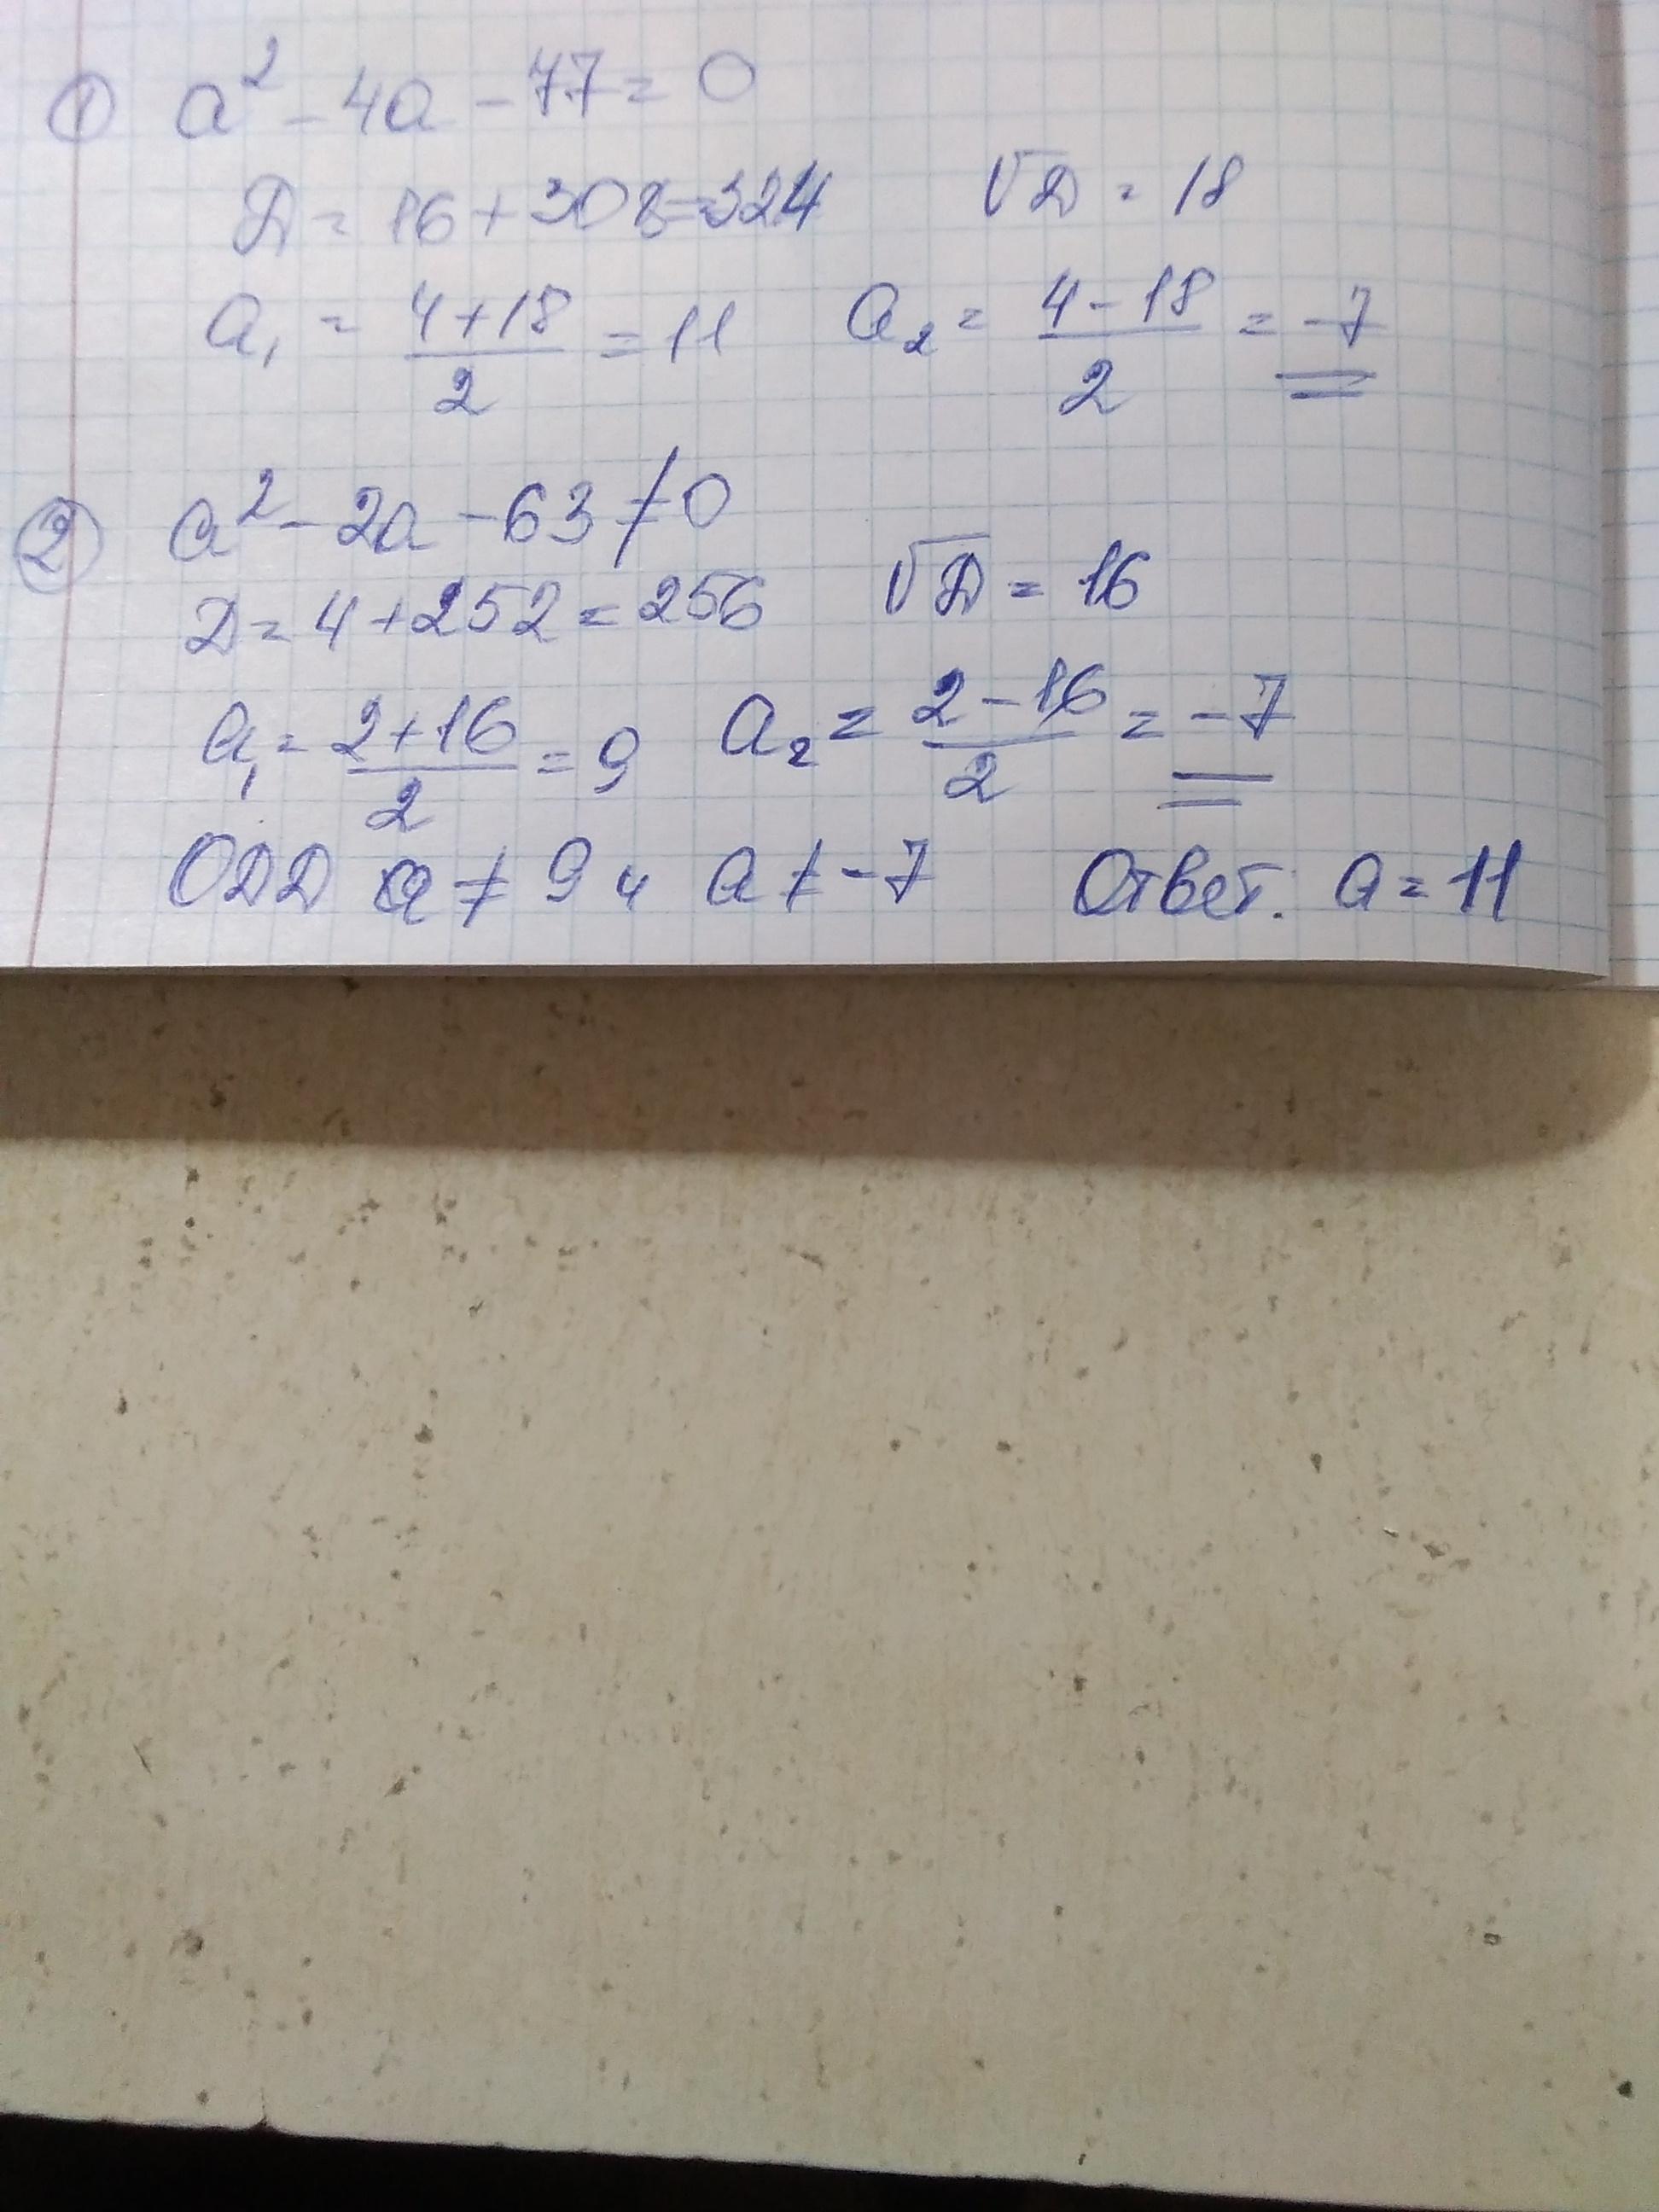 ① a² - 4a - 77 = 0
D = 16 + 308 = 324 √D = 18
a₁ = (4+18)/2 = 11 a₂ = (4-18)/2 = -7
② a² - 2a - 63 ≠ 0
D = 4 + 252 = 256 √D = 16
a₁ = (2+16)/2 = 9 a₂ = (2-16)/2 = -7
ОДД a ≠ 9 и a ≠ -7 Ответ: a = 11